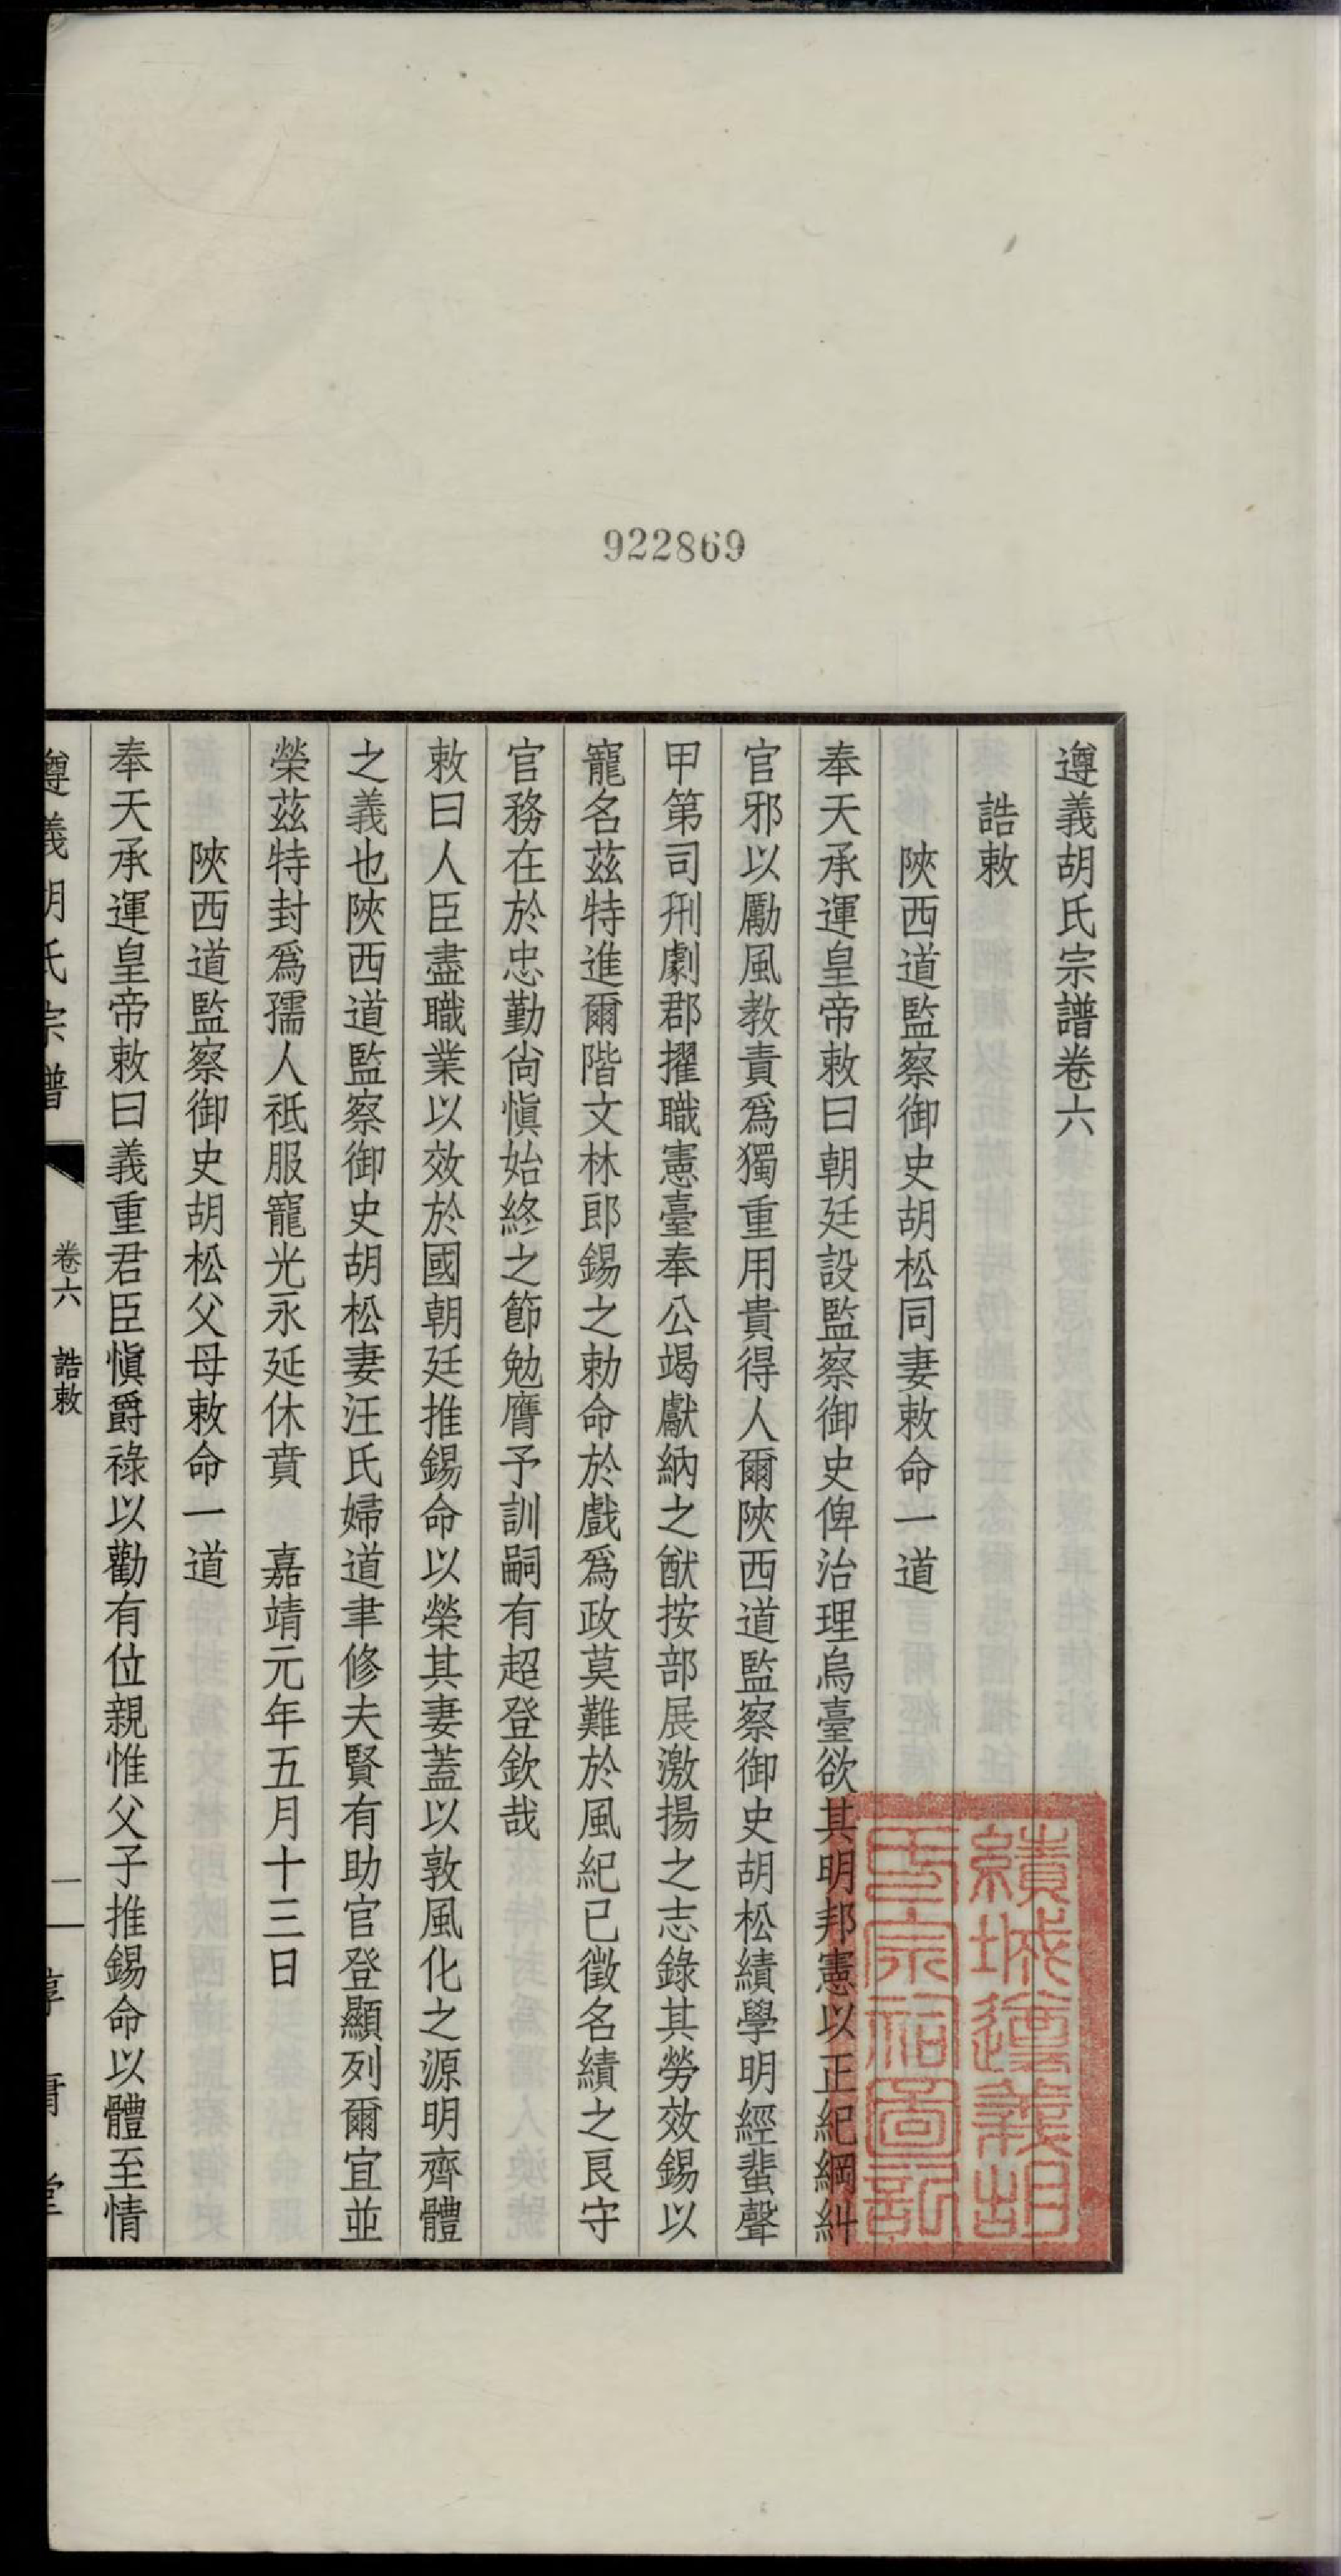 922869
遵義胡氏宗譜卷六
誥敕
陝西道監察御史胡松同妻敕命一道
奉天承運皇帝敕曰朝廷設監察御史俾治理烏臺欲其明邦憲以正紀綱糾
官邪以勵風教責爲獨重用貴得人爾陝西道監察御史胡松績學明經蜚聲
甲第司刑劇郡擢職憲臺奉公竭獻納之猷按部展激揚之志錄其勞效錫以
寵名茲特進爾階文林郎錫之勅命於戲爲政莫難於風紀已徵名績之良守
官務在於忠勤尙愼始終之節勉膺予訓嗣有超登欽哉
敕曰人臣盡職業以效於國朝廷推錫命以榮其妻蓋以敦風化之源明齊體
之義也陝西道監察御史胡松妻汪氏婦道聿修夫賢有助官登顯列爾宜並
榮茲特封爲孺人祇服寵光永延休賁　嘉靖元年五月十三日
陝西道監察御史胡松父母敕命一道
奉天承運皇帝敕曰義重君臣愼爵祿以勸有位親惟父子推錫命以體至情
遵義胡氏宗譜　卷六　誥敕　一
績城遵義胡
氏宗祠圖記